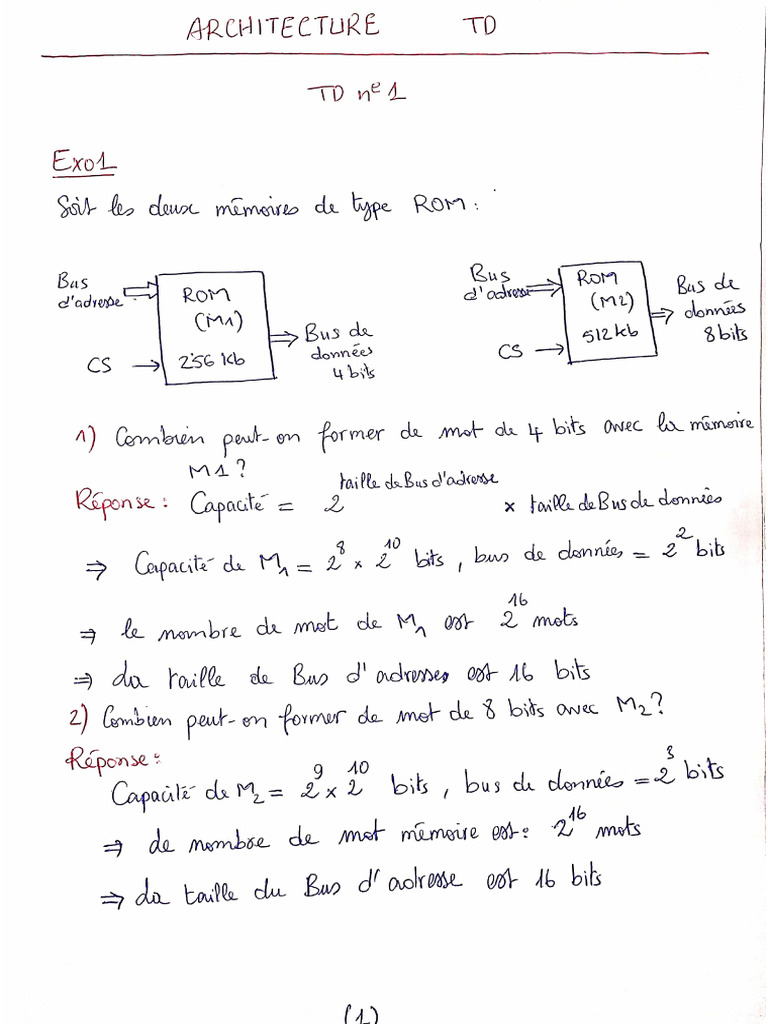 ARCHITECTURE TD
TD n° 1
Exo1
Soit les deux mémoires de type ROM :
Bus d'adresse
ROM (M1) 256 kb
CS
Bus de données 4 bits
Bus d'adresse
ROM (M2) 512 kb
CS
Bus de données 8 bits
1) Combien peut-on former de mot de 4 bits avec la mémoire
M1 ?
Réponse : Capacité = 2^taille de Bus d'adresse × taille de Bus de données
⇒ Capacité de M₁ = 2⁸ × 2¹⁰ bits , bus de données = 2² bits
⇒ le nombre de mot de M₁ est 2¹⁶ mots
⇒ La taille de Bus d'adresses est 16 bits
2) Combien peut-on former de mot de 8 bits avec M₂ ?
Réponse :
Capacité de M₂ = 2⁹ × 2¹⁰ bits , bus de données = 2³ bits
⇒ de nombre de mot mémoire est : 2¹⁶ mots
⇒ La taille du Bus d'adresse est 16 bits
(1)